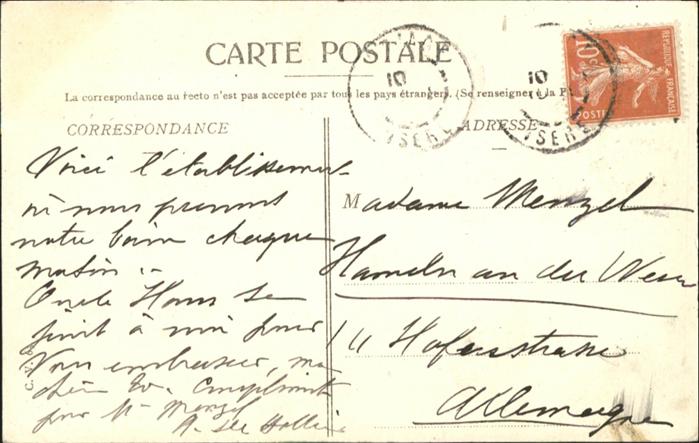 CARTE POSTALE
La correspondance au recto n'est pas acceptée par tous les pays étrangers. (Se renseigner à la P
CORRESPONDANCE
ADRESSE
REPUBLIQUE FRANÇAISE
10c
POSTES
ISERE
10
ISERE
10
Voici l'établissement
où nous prenons
notre bain chaque
matin ..
Oncle Hans se
joint à moi pour
vous embrasser, ma
chère
Compliments
pour Mr Menzel
Madame Menzel
Hameln an der Weser
Hafenstrasse
Allemagne